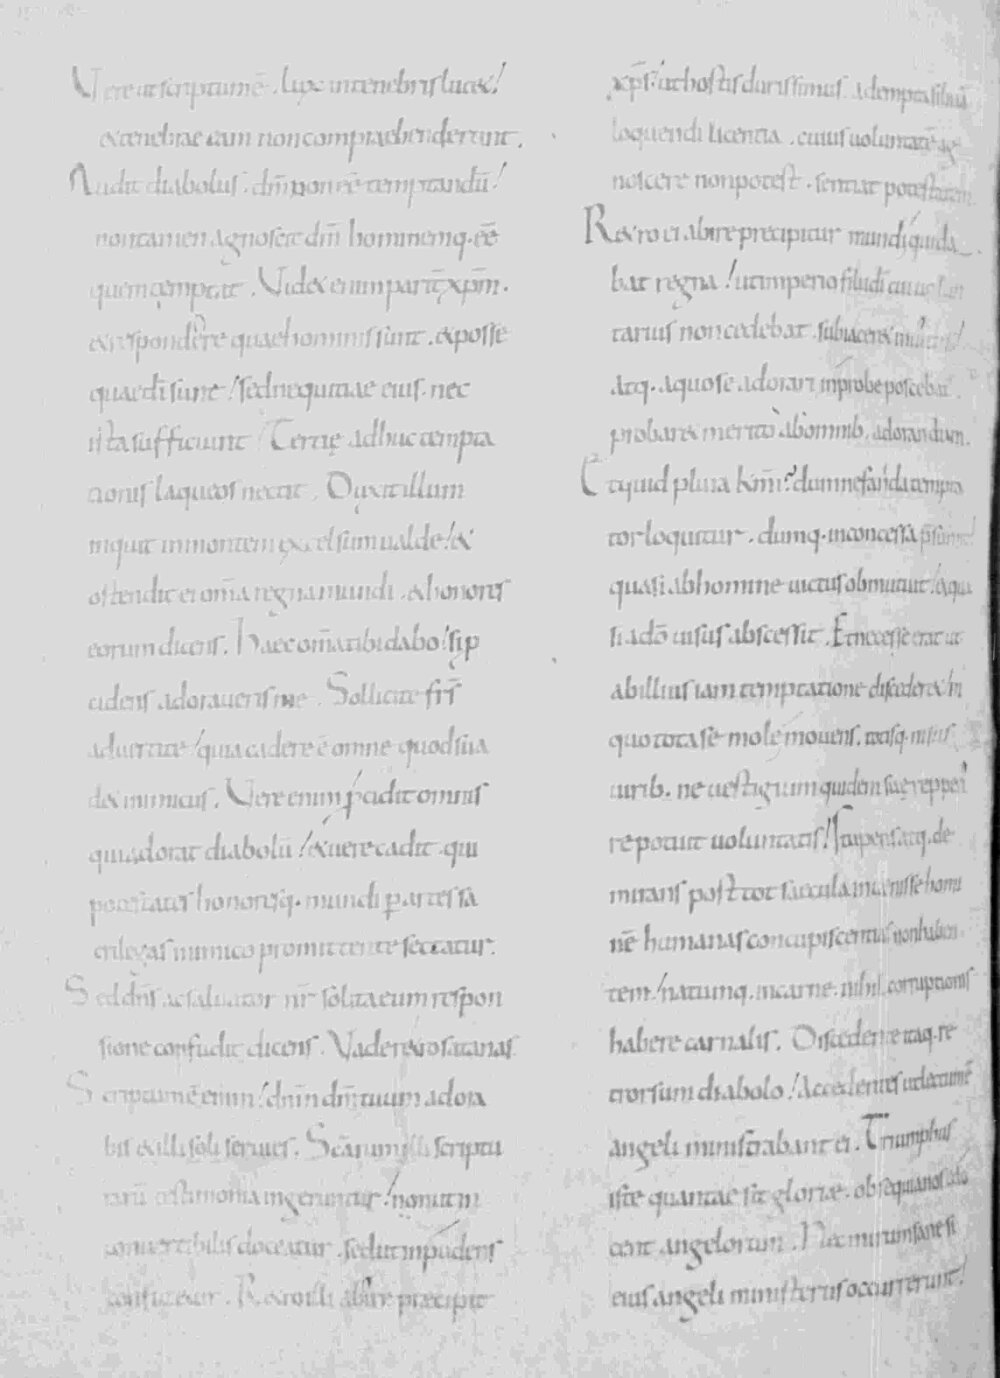 Vere ut scriptum ē. lux in tenebris lucet!
et tenebrae eam non compraehenderunt.
Audit diabolus. dn̄m non eē temptandū!
non tamen agnoscit dm̄ hominemq. eē
quem temptat. Videt enim parit̄ xp̄m.
et respondere quae hominis sunt. et posse
quae dī sunt! sed nequitiae eius. nec
ista sufficiunt! Tertię adhuc tempta
tionis laqueos nectit. Duxit illum
inquit in montem excelsum ualde! &
ostendit ei om̄a regna mundi. & honores
eorum dicens. Haec om̄a tibi dabo! si p
cidens adoraueris me. Sollicite frs̄
aduertite! quia cadere ē omne quod sua
det inimicus. Vere enim p̱cidit omnis
qui adorat diabolū! & uere cadit. qui
potestates honoresq. mundi p̱artes sa
crilegas inimico promittente sectatur.
Sed dn̄s ac saluator nr̄ solita eum respon
sione confudit dicens. Vade retro satanas
Scriptum ē enim! dn̄m dm̄ tuum adora
bis & illi soli seruies. Scārum illi scriptu
rarū testimonia ingeruntur! non ut in
conuertibilis doceatur. sed ut inpudens
confutetur. Retro illi abire precipit̄
xp̄s! ut hostis durissimus. adempta sibi uł
loquendi licentia. cuius uoluntatē ag
noscere non potest. sentiat potestatem.
Retro ei abire precipitur mundi qui da
bat regna! ut imperio filii dī cui uolun
tarius non cedebat. subiaceret inuitus!
atq. a quo se adorari inprobe poscebat.
probaret merito ab omnib. adorandum.
Et quid plura km̄i? dum nefanda tempta
tor loquitur. dumq. inconcessa p̄sumit!
quasi ab homine uictus obmutuit! & qua
si a dō uisus abscessit. Et necesse erat ut
ab illius iam temptatione discederet! in
quo tota se mole mouens. totisq. nisus
uirib. ne uestigium quidem suę repperi
re potuit uoluntatis! Stupens atq. de
mirans post tot saecula inuenisse homi
nē humanas concupiscentias non haben
tem! natumq. in carne. nihil corruptionis
habere carnalis. Discedente itaq. re
trorsum diabolo! Accedentes ut lectum ē
angeli ministrabant ei. Triumphus
iste quantae sit gloriæ. obsequia nos do
cent angelorum. Nec mirum sane si
eius angeli ministeriis occurrerunt!